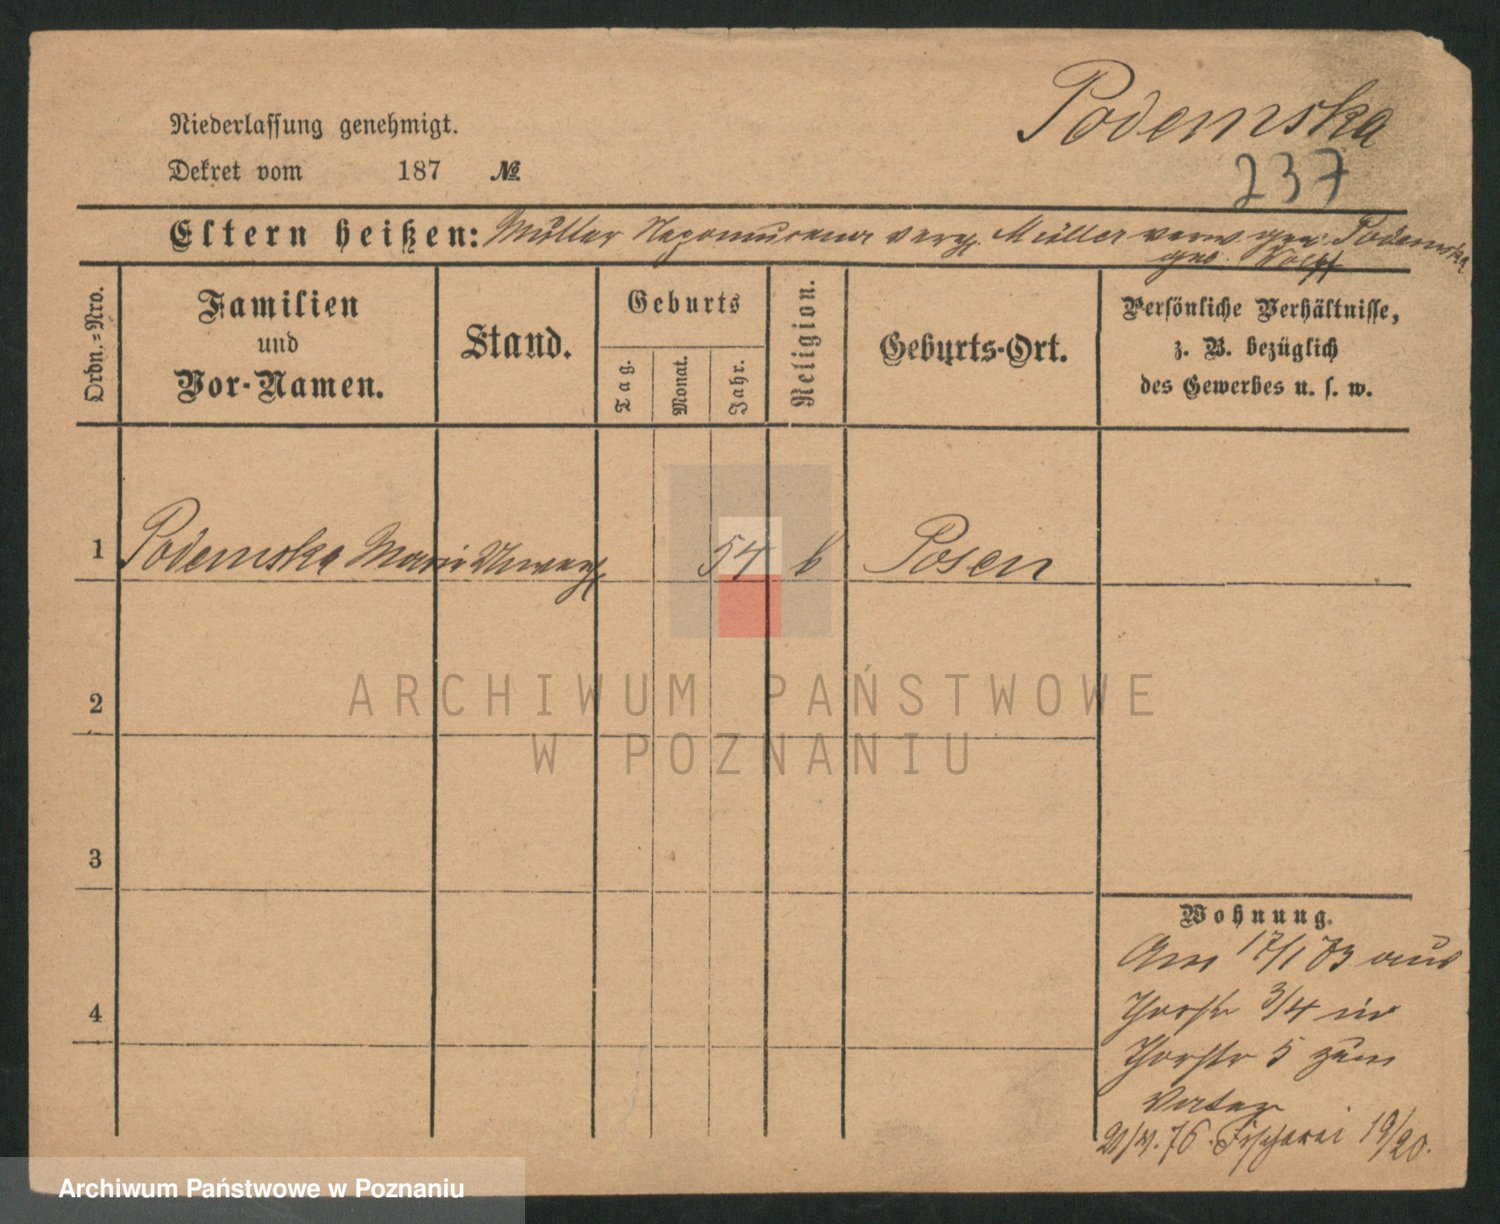 Podemska
237
Niederlassung genehmigt.
Dekret vom 187 №
Eltern heißen: Müller Nepomucena verw. Podemska
geb.
Ordn.=Nro.
Familien
und
Vor-Namen.
Stand.
Geburts
Tag.
Monat.
Jahr.
Religion.
Geburts-Ort.
Persönliche Verhältnisse,
z. B. bezüglich
des Gewerbes u. s. w.
1 Podemska Marie 54 Posen
2
3
4
Wohnung.
Am 17/1 73 aus
Thorstr 3/4 in
Thorstr 5 zum
Vater
76. Fischerei 19/20.
ARCHIWUM PAŃSTWOWE
W POZNANIU
Archiwum Państwowe w Poznaniu